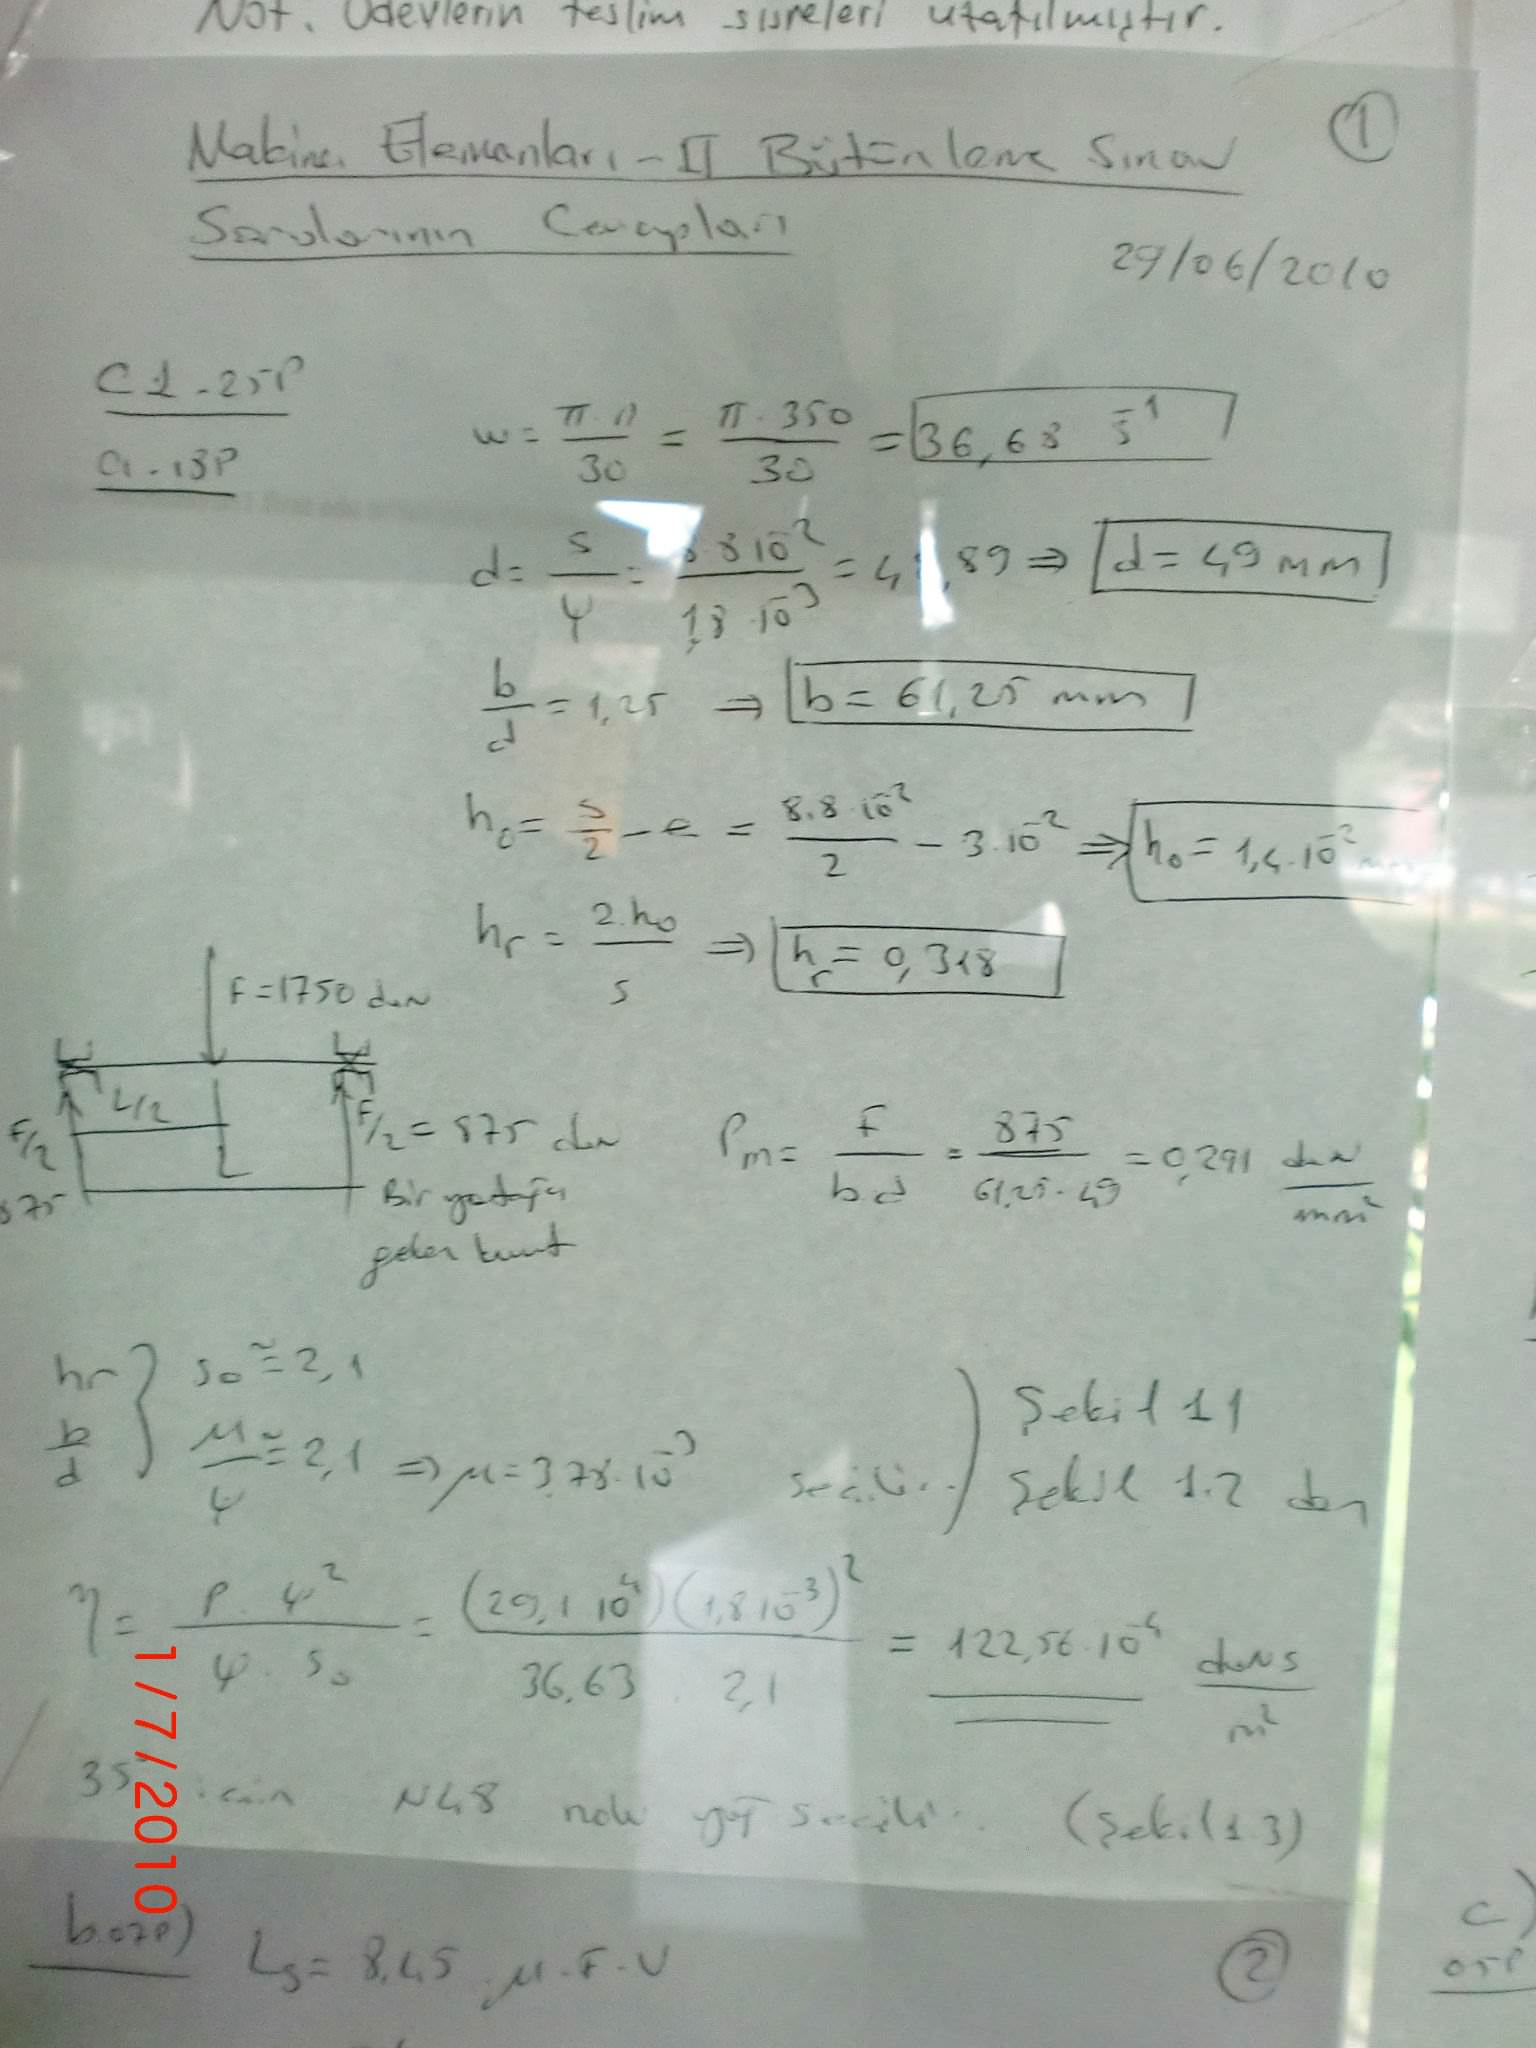 Not. Ödevlerin teslim süreleri uzatılmıştır.
①
Makina Elemanları-II Bütünleme Sınav
Sorularının Cevapları
29/06/2010
C1-25P
a-18P
w = π.n/30 = π.350/30 = 36,68 s⁻¹
d = s/ψ = 8.8 10⁻²/1,8 10⁻³ = 48,89 ⇒ d = 49 mm
b/d = 1,25 ⇒ b = 61,25 mm
h₀ = s/2 - e = 8.8·10⁻²/2 - 3.10⁻² ⇒ h₀ = 1,4.10⁻² mm
hr = 2.h₀/s ⇒ hr = 0,318
F = 1750 daN
L/2
F/2
F/2 = 875 daN
L
875
Bir yatağa
gelen kuvvet
Pm = F/b.d = 875/61,25.49 = 0,291 daN/mm²
hr
b/d
} s₀ ≅ 2,1
μ/ψ ≅ 2,1 ⇒ μ = 3,78.10⁻³ seçilir.
) Şekil 1.1
Şekil 1.2 den
η = P.ψ²/ψ.s₀ = (29,1 10⁴)(1,8 10⁻³)²/36,63 . 2,1 = 122,56.10⁻⁴ daNs/m²
35° için N48 nolu yağ seçilir. (Şekil 1.3)
1/7/2010
b.07P) Ls = 8,45 .μ.F.V
②
c)
05P